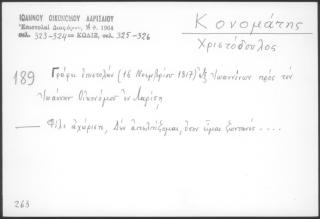 ΙΩΑΝΝΟΥ ΟΙΚΟΝΟΜΟΥ ΛΑΡΙΣΑΙΟΥ
Ἐπιστολαὶ Διαφόρων, 1964
σελ. 323-324 ΚΩΔΙΞ, σελ. 325-326
Κονομάτης
Χριστόδουλος
189 Γράφει ἐπιστολὴν (16 Νοεμβρίου 1817) ἐξ Ἰωαννίνων πρὸς τὸν
Ἰωάννην Οἰκονόμον ἐν Λαρίσῃ,
Φίλε ἀχώριστε, Δὲν ἀπελπίζομαι, ὅταν εἶμαι ζωντανός ....
263